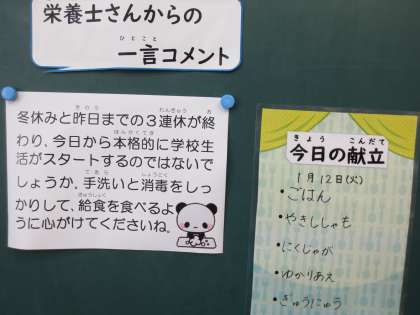 栄養士さんからの
一言コメント
冬休みと昨日までの３連休が終
わり、今日から本格的に学校生
活がスタートするのではないで
しょうか。手洗いと消毒をしっ
かりして、給食を食べるよ
うに心がけてくださいね。
今日の献立
1月12日(火)
・ごはん
・やきししゃも
・にくじゃが
・ゆかりあえ
・ぎゅうにゅう